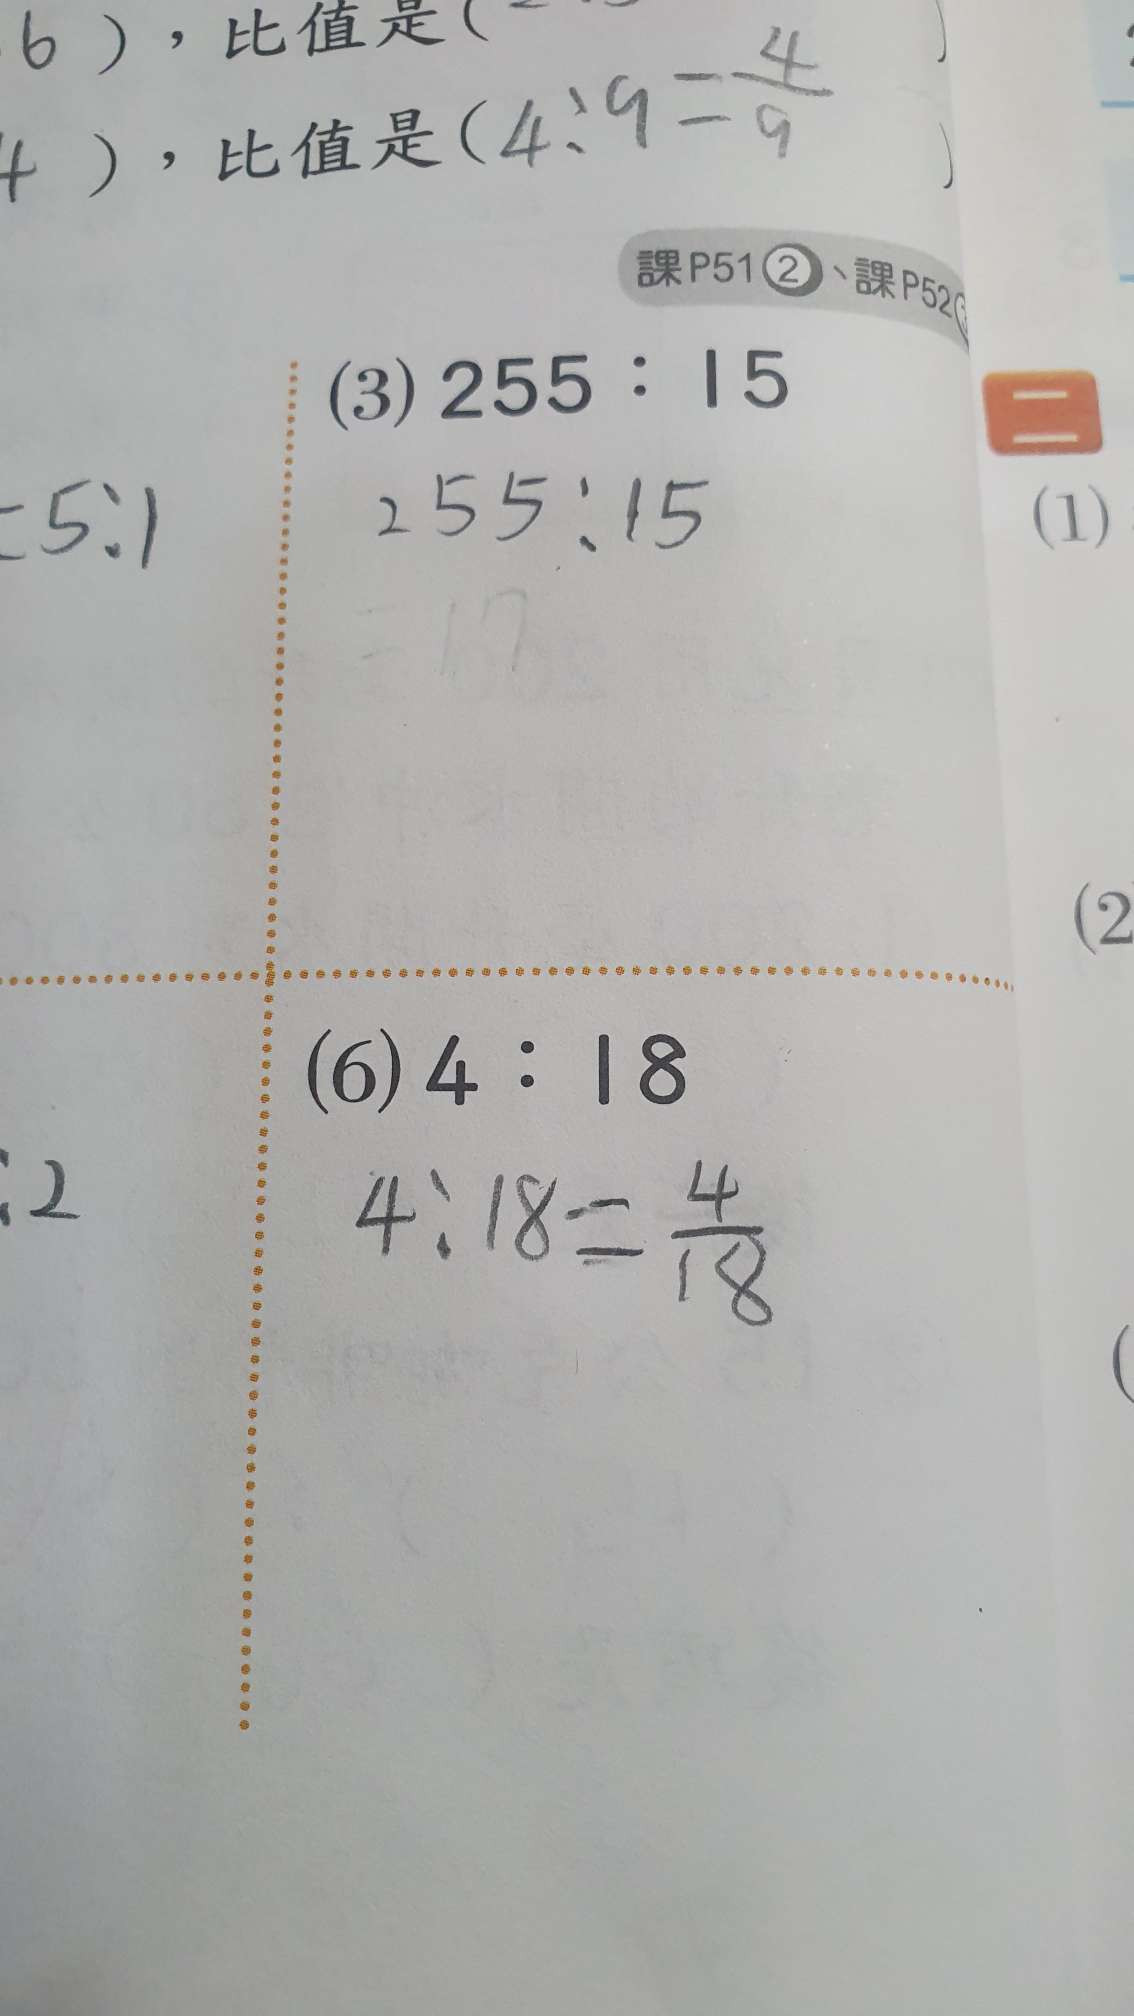 6 ），比值是(
4 ），比值是( 4:9=4/9 )
課P51②、課P52
(3) 255：15
=5:1
255:15
=17
二
(1)
(2
(6) 4：18
:2
4:18=4/18